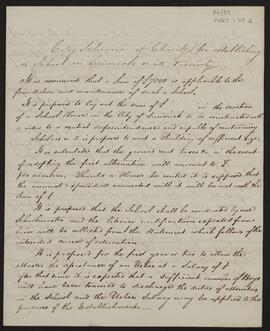 P4/39
PART 1 OF 2
Copy Scheme of Charity for establishing
a School in Limerick or its Vicinity
It is assumed that a Sum of £7000 is applicable to the
foundation and maintenance of such a School.
It is proposed to lay out the sum of £ in the erection
of a School House in the City of Limerick to be constructed with
a view to a central superintendance and capable of containing
Scholars or it is proposed to rent a Building of sufficient size.
It is calculated that the ground rent taxes &c in the event
of adopting the first alternative will amount to £
per annum. Should a House be rented it is supposed that
the annual expenditure connected with it will be not with the
Sum of £
It is proposed that the School shall be conducted by one
Schoolmaster and the literary qualifications expected from
him will be collected from the Statement which follows of the
intended course of education.
It is proposed for the first year or two to allow the
Master the assistance of an Usher at a Salary of £
after that time it is expected that a sufficient number of Boys
will have been trained to discharge the duties of Monitors
in the School and the Ushers Salary may be applied to this
purpose of the Establishment.